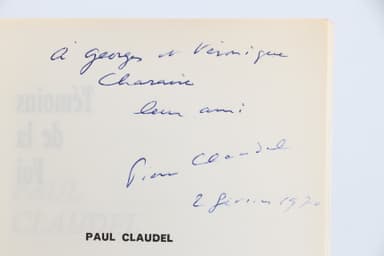 à Georges et Véronique
Charaire
leur ami
Pierre Claudel
2 février 1970
PAUL CLAUDEL
Témoins
de la
Foi
PAUL
CLAUDEL